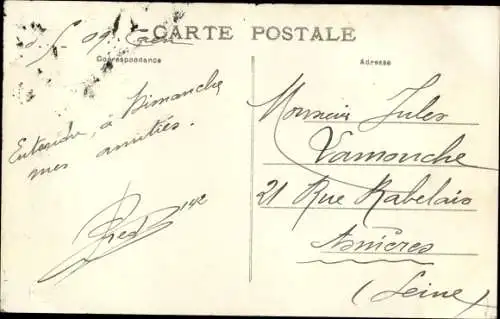 CARTE POSTALE
Correspondance
Adresse
Entendu, à Dimanche
mes amitiés.
Fred
Monsieur Jules
Lamouche
21 Rue Rabelais
Asnières
(Seine)